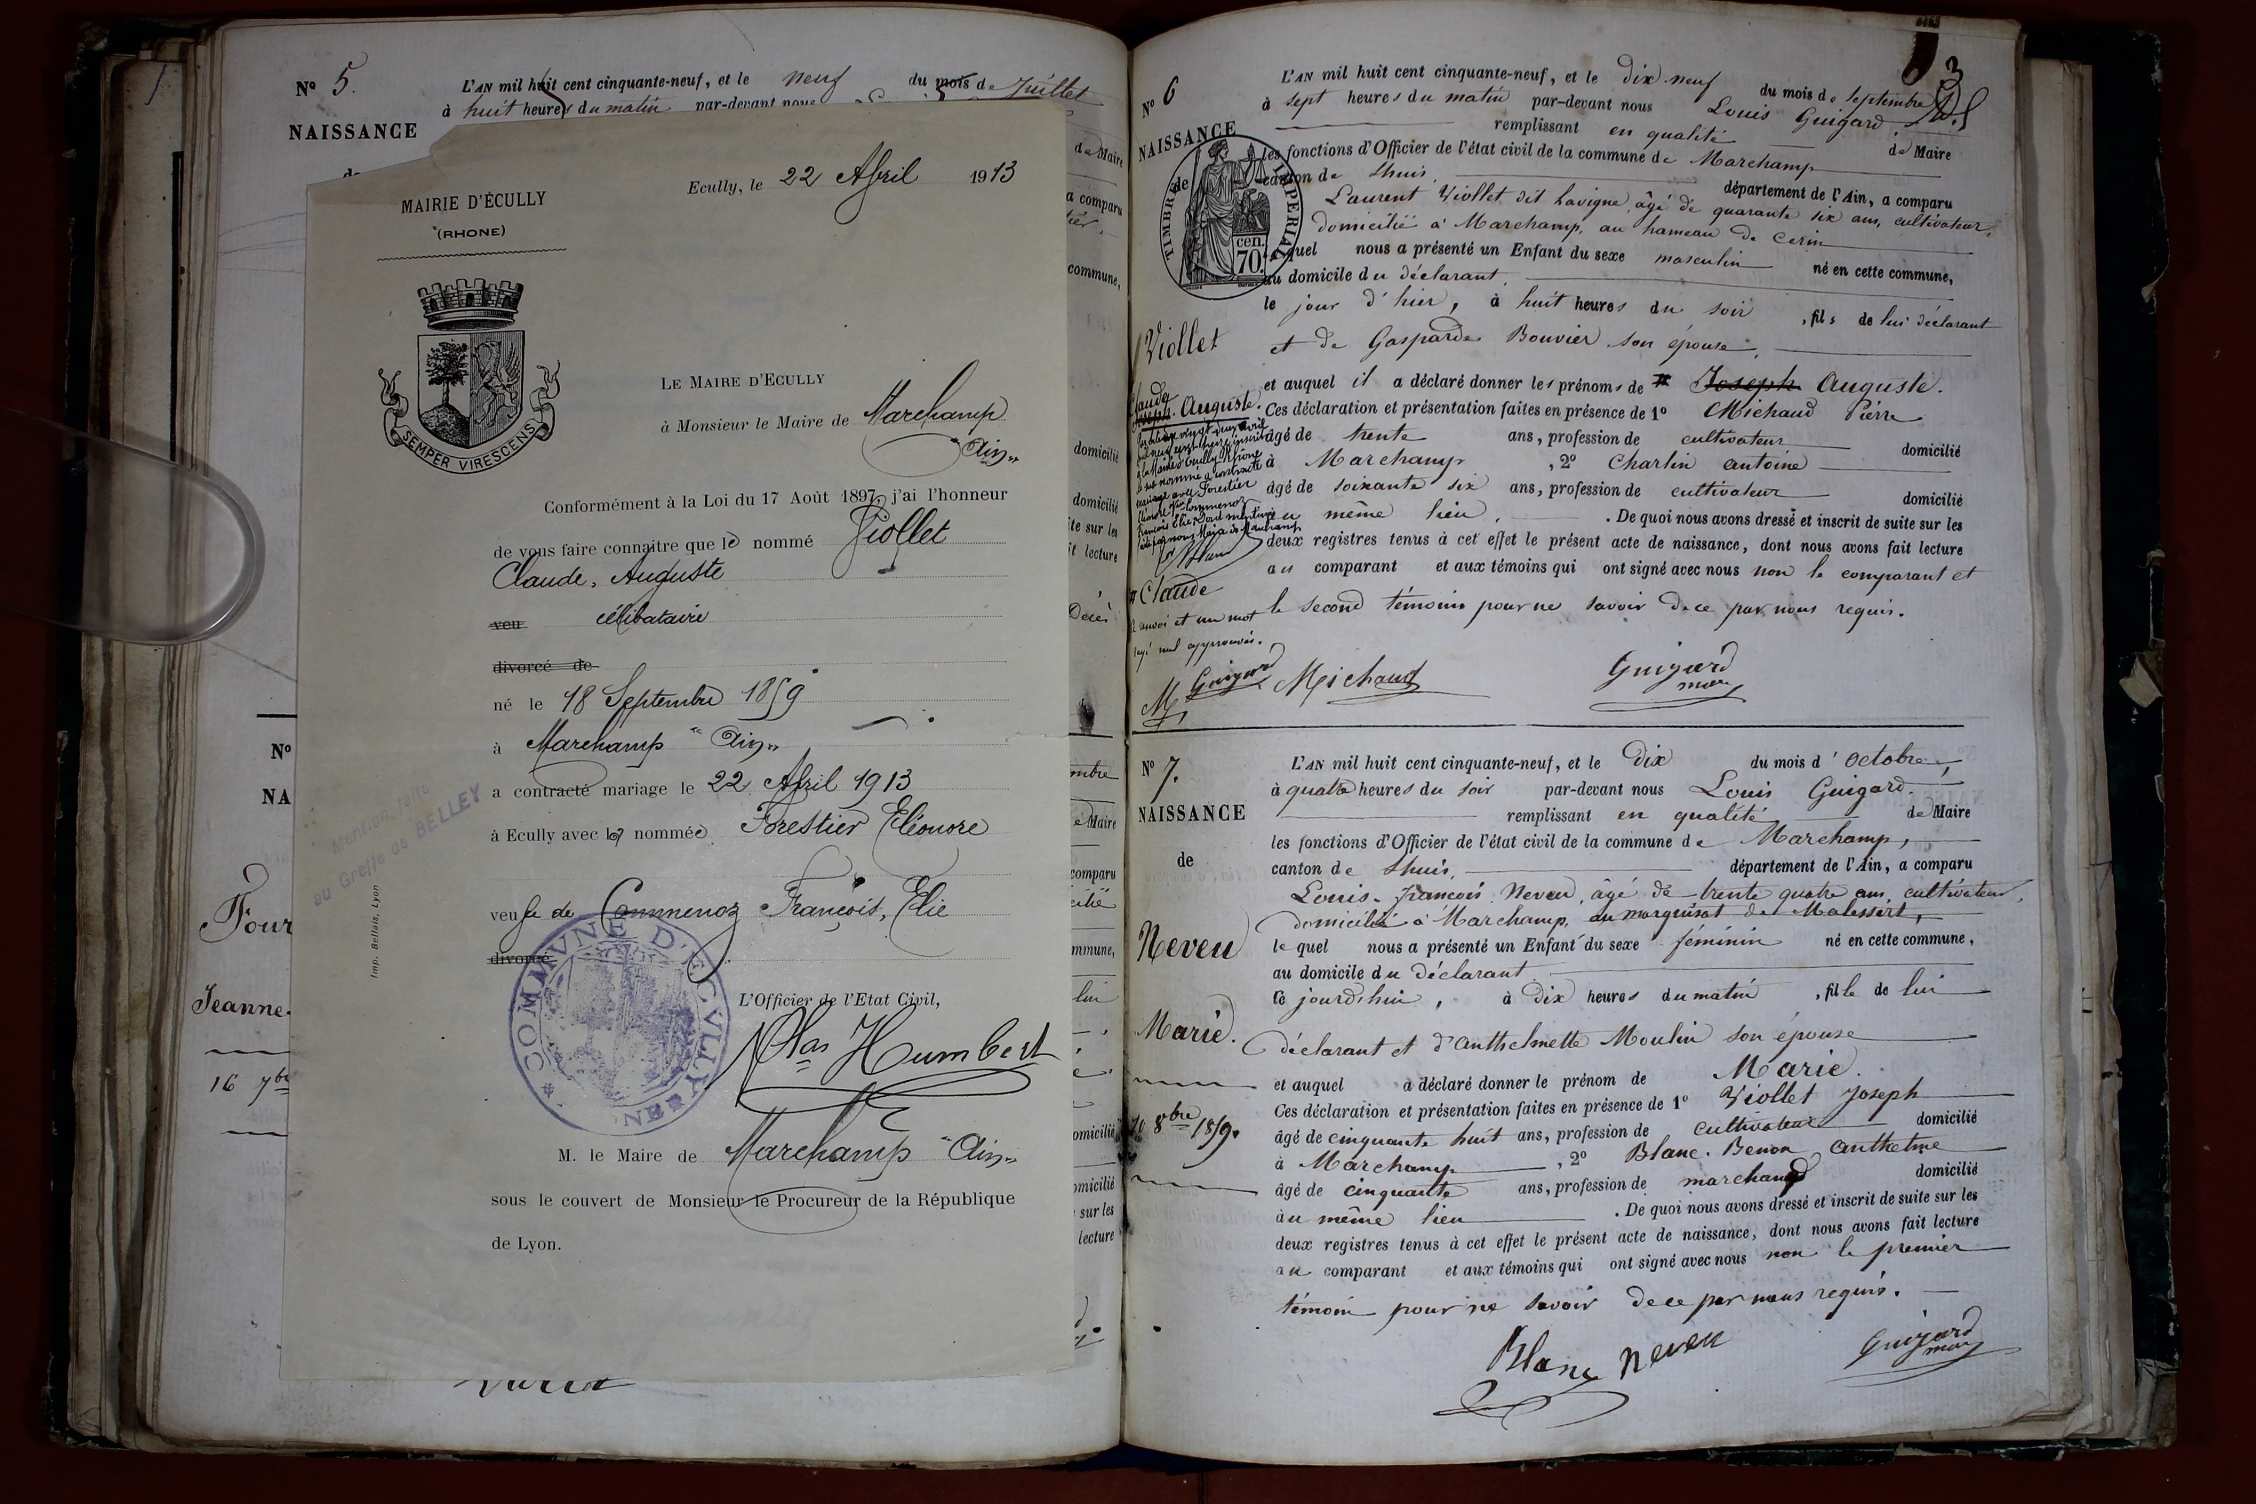 Nº 5.
L'AN mil huit cent cinquante-neuf, et le neuf du mois de Juillet
à huit heures du matin par-devant nous
NAISSANCE
de Maire
a comparu
commune,
domicilié
domicilié
ite sur les
it lecture
Décès
MAIRIE D'ÉCULLY
(RHONE)
Ecully, le 22 Avril 1913
SEMPER VIRESCENS
LE MAIRE D'ECULLY
à Monsieur le Maire de Marchamp
"Ain"
Conformément à la Loi du 17 Août 1897, j'ai l'honneur
de vous faire connaître que le nommé Viollet
Claude, Auguste
veu célibataire
divorcé de
né le 18 Septembre 1859
à Marchamp "Ain"
a contracté mariage le 22 Avril 1913
à Ecully avec la nommée Forestier Eléonore
veuve de Commenoz François, Elie
divorcé
Mention faite
au Greffe de BELLEY
Imp. Bellaix, Lyon
COMMUNE D'ECULLY
L'Officier de l'Etat Civil,
Humbert
M. le Maire de Marchamp "Ain"
sous le couvert de Monsieur le Procureur de la République
de Lyon.
Nº
NA
Four
Jeanne
16 7bre
mbre
de Maire
comparu
cilié
mmune,
lui
omicilié
omicilié
sur les
lecture
3
Nº 6
NAISSANCE
de
TIMBRE IMPERIAL
70 cen.
L'AN mil huit cent cinquante-neuf, et le dix neuf du mois de septembre
à sept heures du matin par-devant nous Louis Guigard.
remplissant en qualité de Maire
les fonctions d'Officier de l'état civil de la commune de Marchamp
canton de Lhuis, département de l'Ain, a comparu
Laurent Viollet dit Lavigne, âgé de quarante six ans, cultivateur,
domicilié à Marchamp, au hameau de Cerin
lequel nous a présenté un Enfant du sexe masculin né en cette commune,
au domicile du déclarant,
le jour d'hier, à huit heures du soir, fils de lui déclarant
et de Gasparde Bouvier son épouse,
et auquel il a déclaré donner les prénoms de # Joseph Auguste.
Ces déclaration et présentation faites en présence de 1º Michaud Pierre
âgé de trente ans, profession de cultivateur domicilié
à Marchamp, 2º Charlin antoine
âgé de soixante six ans, profession de cultivateur domicilié
au même lieu. De quoi nous avons dressé et inscrit de suite sur les
deux registres tenus à cet effet le présent acte de naissance, dont nous avons fait lecture
au comparant et aux témoins qui ont signé avec nous non le comparant et
le second témoins pour ne savoir de ce par nous requis.
Viollet
Claude
Joseph Auguste.
mariage avec Forestier
# Claude
renvoi et un mot
rayé nul approuvés.
M Guigard Michaud Guigard
maire
Nº 7.
NAISSANCE
de
Neveu
Marie.
10 8bre 1859.
L'AN mil huit cent cinquante-neuf, et le Dix du mois d'octobre,
à quatre heures du soir par-devant nous Louis Guigard.
remplissant en qualité de Maire
les fonctions d'Officier de l'état civil de la commune de Marchamp,
canton de Lhuis, département de l'Ain, a comparu
Louis-françois Neveu, âgé de trente quatre ans, cultivateur,
domicilié à Marchamp, au marquisat de Malessert,
lequel nous a présenté un Enfant du sexe féminin né en cette commune,
au domicile du déclarant
ce jourd'hui, à dix heures du matin, fille de lui
déclarant et d'anthelmette Moulin son épouse
et auquel a déclaré donner le prénom de Marie.
Ces déclaration et présentation faites en présence de 1º Viollet Joseph
âgé de cinquante huit ans, profession de cultivateur domicilié
à Marchamp, 2º Blanc-Benon anthelme
âgé de cinquante ans, profession de marchand domicilié
au même lieu. De quoi nous avons dressé et inscrit de suite sur les
deux registres tenus à cet effet le présent acte de naissance, dont nous avons fait lecture
au comparant et aux témoins qui ont signé avec nous non le premier
témoin pour ne savoir de ce par nous requis.
Blanc Neveu Guigard
maire